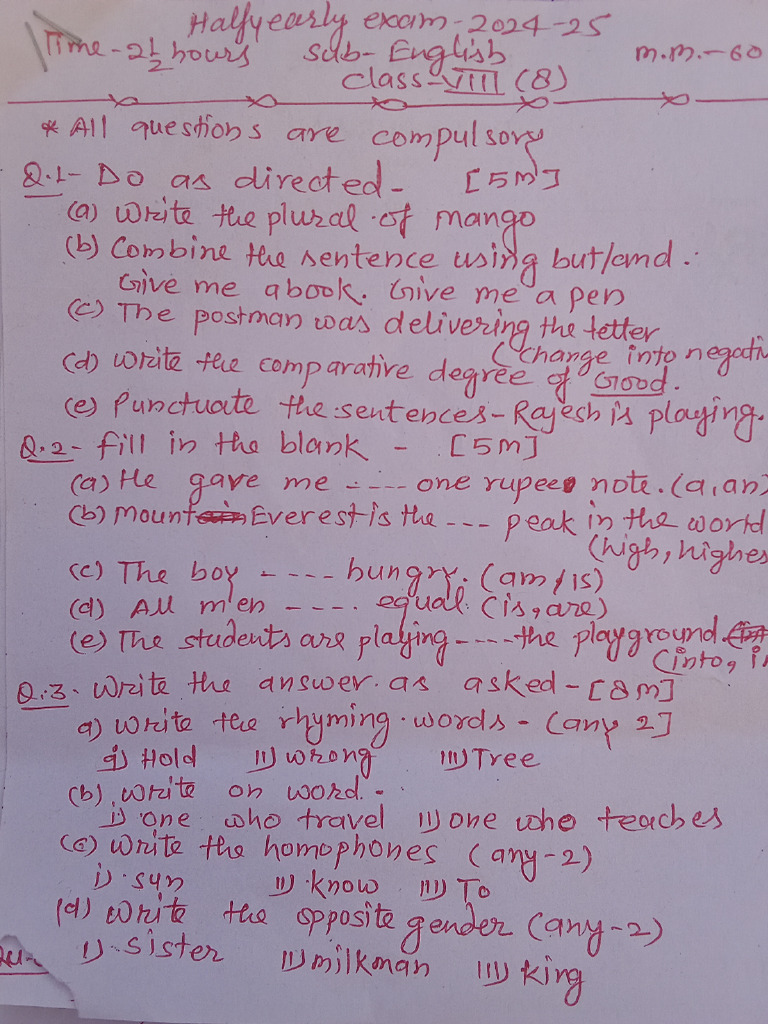 Halfyearly exam-2024-25
Time-2½ hours Sub-English m.m.-60
Class-VIII (8)
* All questions are compulsory
Q.1- Do as directed- [5m]
(a) Write the plural of mango
(b) Combine the sentence using but/and.
Give me a book. Give me a pen
(c) The postman was delivering the letter
(Change into negativ
(d) Write the comparative degree of Good.
(e) Punctuate the sentences-Rajesh is playing.
Q.2- fill in the blank - [5m]
(a) He gave me ---- one rupee note. (a,an)
(b) Mount Everest is the --- peak in the world
(high, highes
(c) The boy ---- hungry. (am/is)
(d) All men ---- equal. (is,are)
(e) The students are playing ---- the playground.
(into, in
Q.3- Write the answer as asked-[8m]
a) Write the rhyming words- (any 2]
i) Hold ii) wrong iii) Tree
(b) Write on word.-
i) one who travel ii) one who teaches
(c) Write the homophones (any-2)
i) sun ii) know iii) To
(d) Write the opposite gender (any-2)
i) sister ii) milkman iii) king